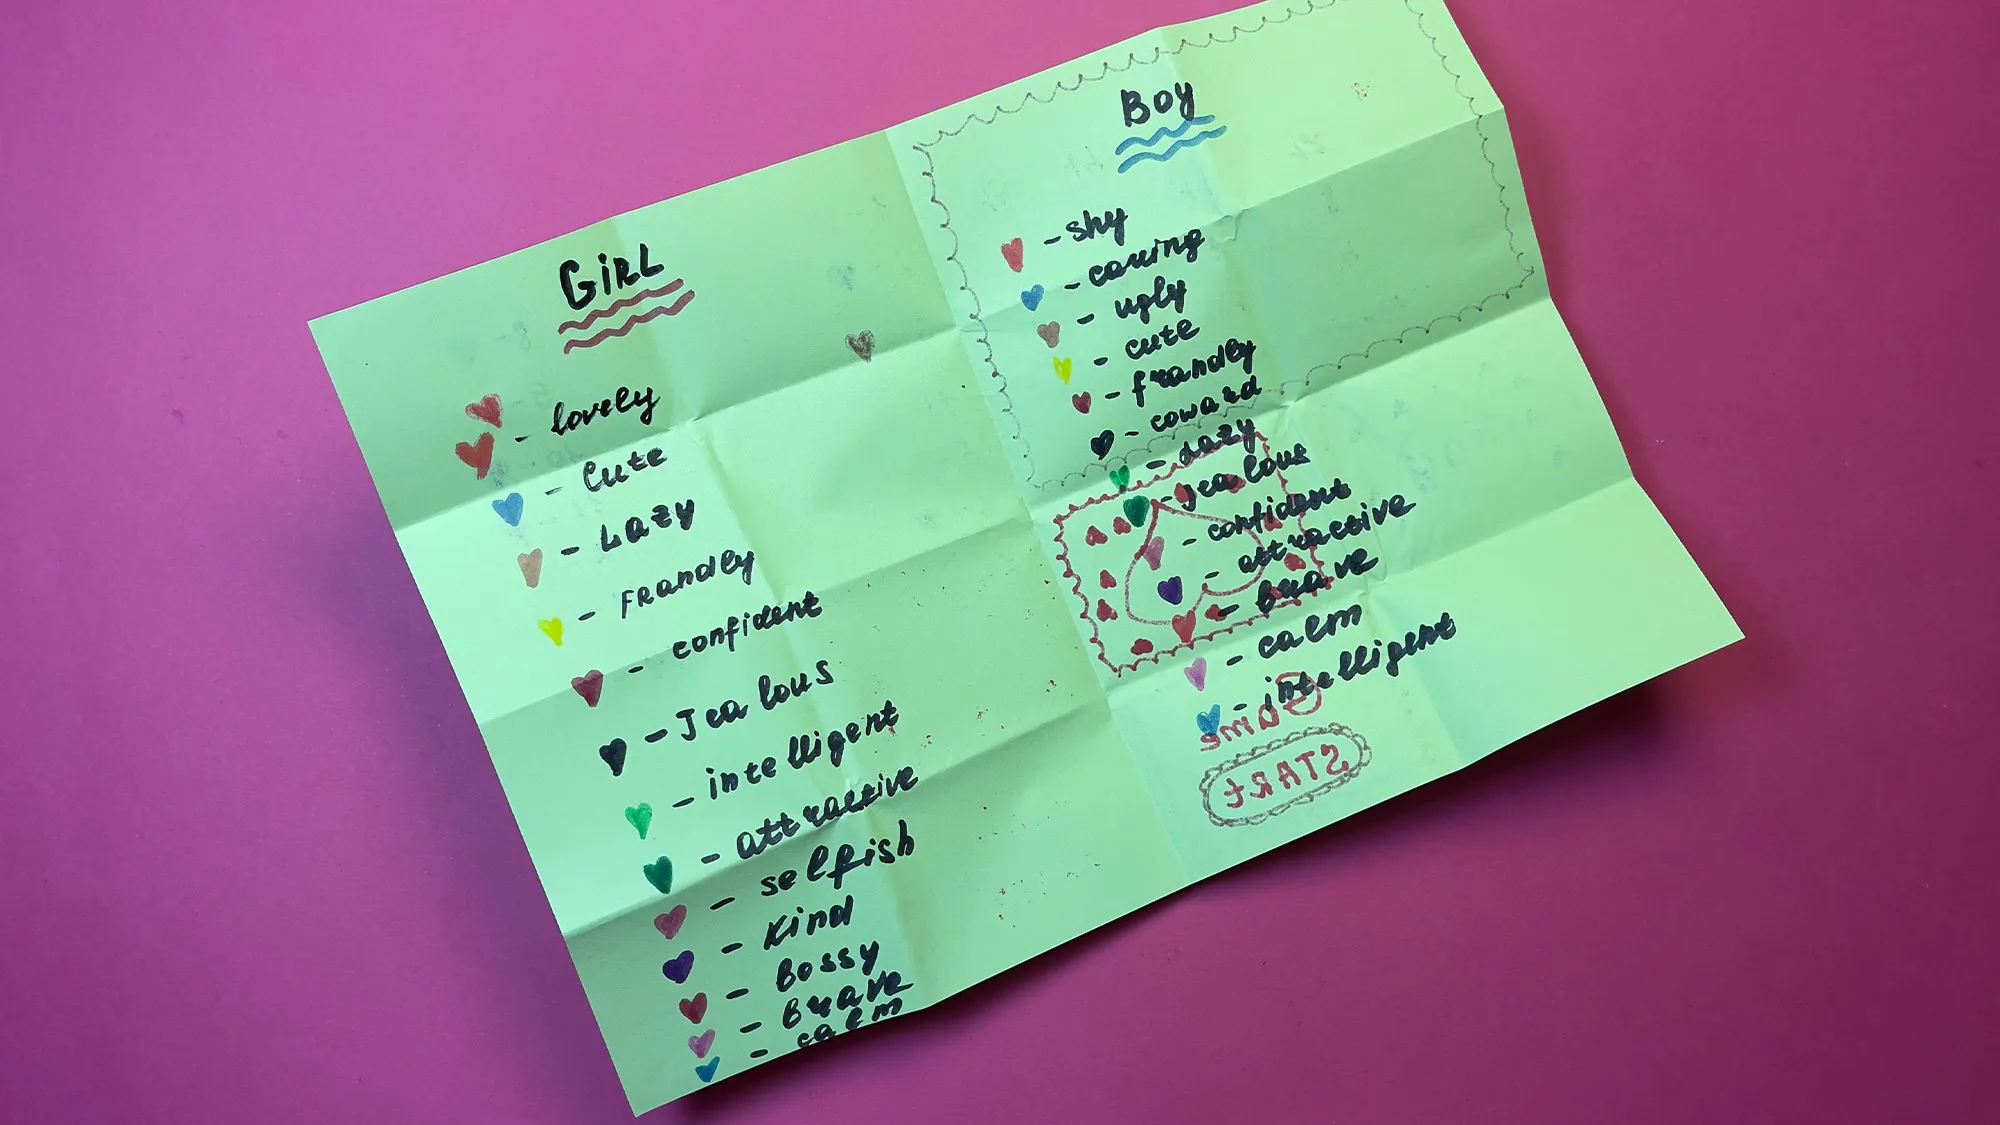 GiRL
- lovely
- Cute
- Lazy
- FRandly
- confident
- Jealous
- intelligent
- attractive
- selfish
- Kind
- Bossy
- Brave
- calm
BOY
- shy
- caring
- ugly
- cute
- frandly
- coward
- Lazy
- jealous
- confident
- attractive
- Brave
- calm
- intelligent
Game
START